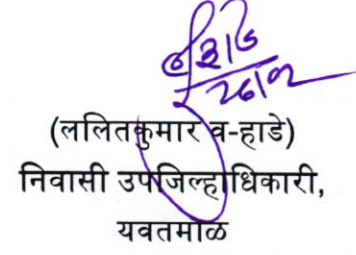 (ललितकुमार व-हाडे)
निवासी उपजिल्हाधिकारी,
यवतमाळ